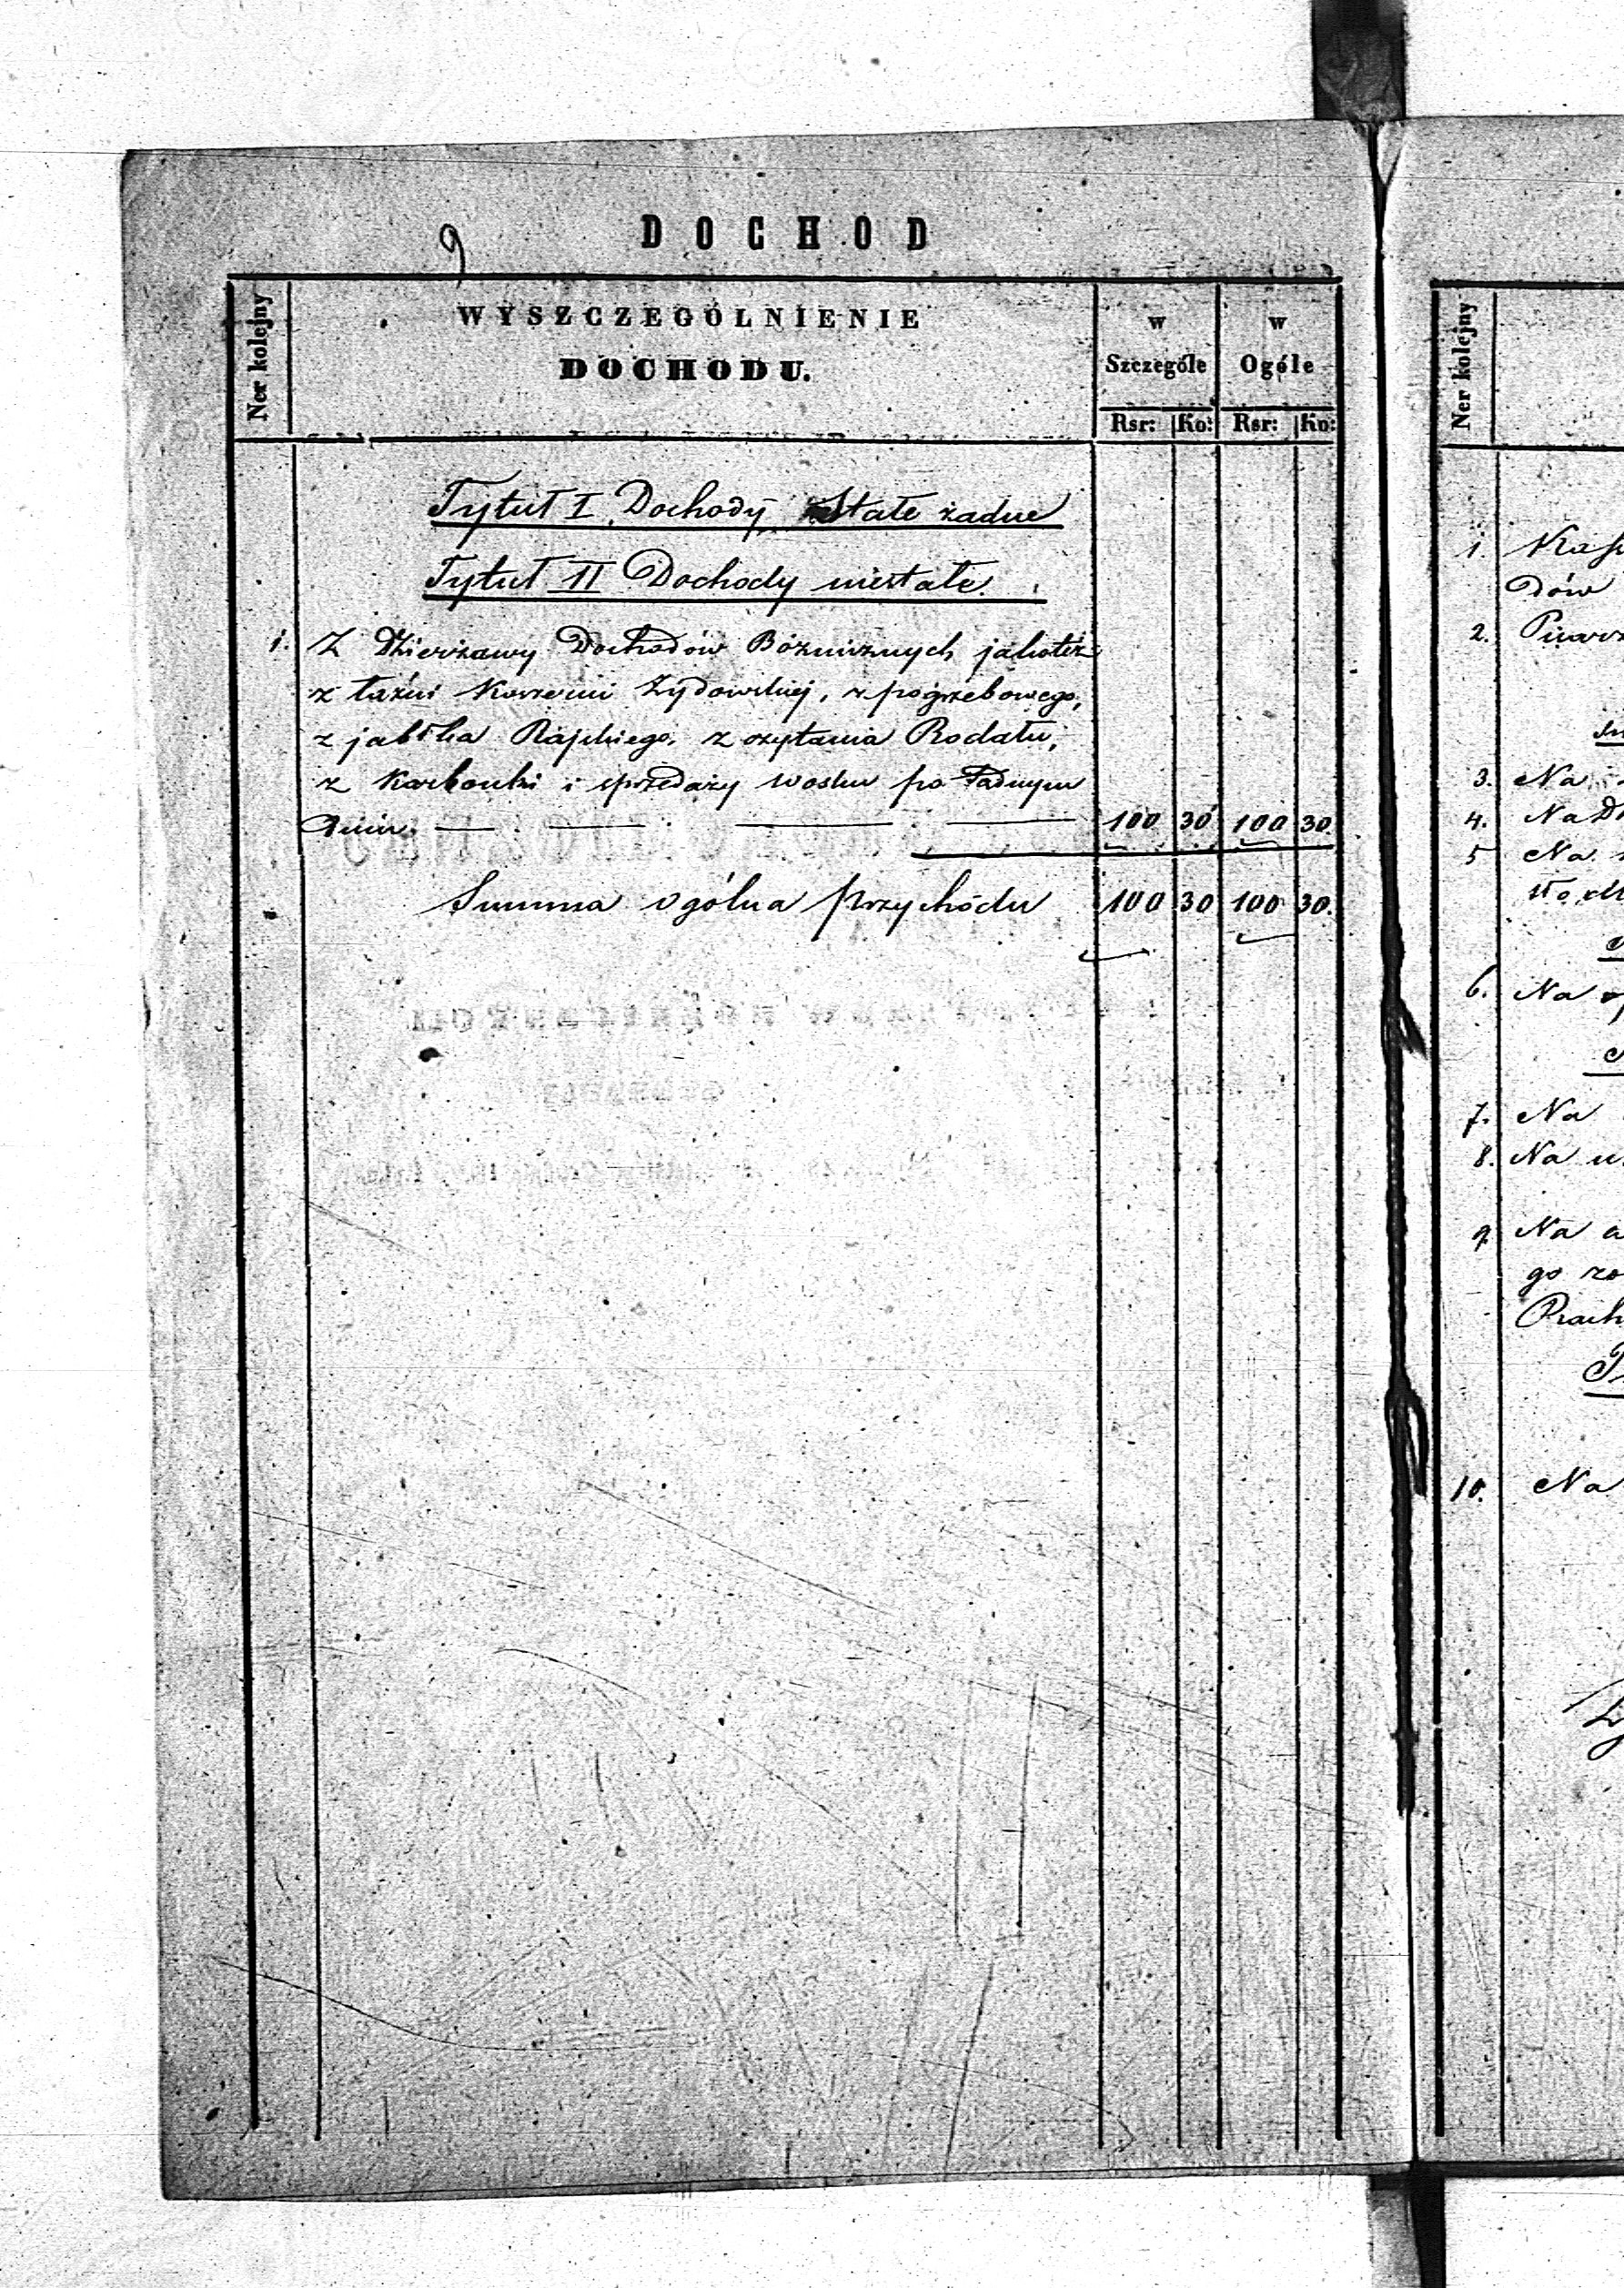 9
DOCHOD
Ner kolejny
WYSZCZEGÓLNIENIE
DOCHODU.
w Szczególe
w Ogóle
Rsr: Ko: Rsr: Ko:
Tytuł I Dochody Stałe żadne
Tytuł II Dochody niestałe.
1. Z Dzierżawy Dochodów Bóżnicznych jakoteż
z łaźni Koszerni Żydowskiej, z pogrzebowego,
z jabłka Rajskiego, z czytania Rodału,
z Karbonki i sprzedaży wosku po Sądnym
Dniu. 100 30 100 30.
Summa ogólna przychodu 100 30 100 30.
Ner kolejny
1.
dów
2.
3. Na
4. Na
5 Na
6. Na
7. Na
8. Na
9. Na
go
10. Na